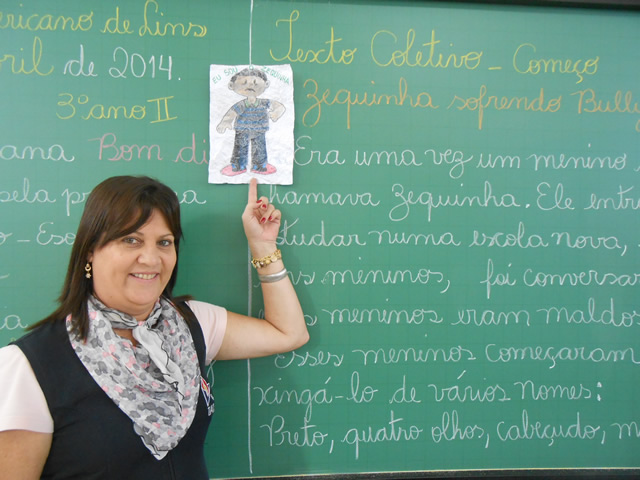 ericano de Lins
ril de 2014.
3º ano II
ana Bom di
pela pr
o - Es
a
EU SOU ZEQUINHA
Texto Coletivo - Começo
Zequinha sofrendo Bull
Era uma vez um menino
chamava Zequinha. Ele entr
studar numa escola nova,
s meninos, foi conversa
s meninos eram maldos
Esses meninos começaram
xingá-lo de vários nomes:
Preto, quatro olhos, cabeçudo, m